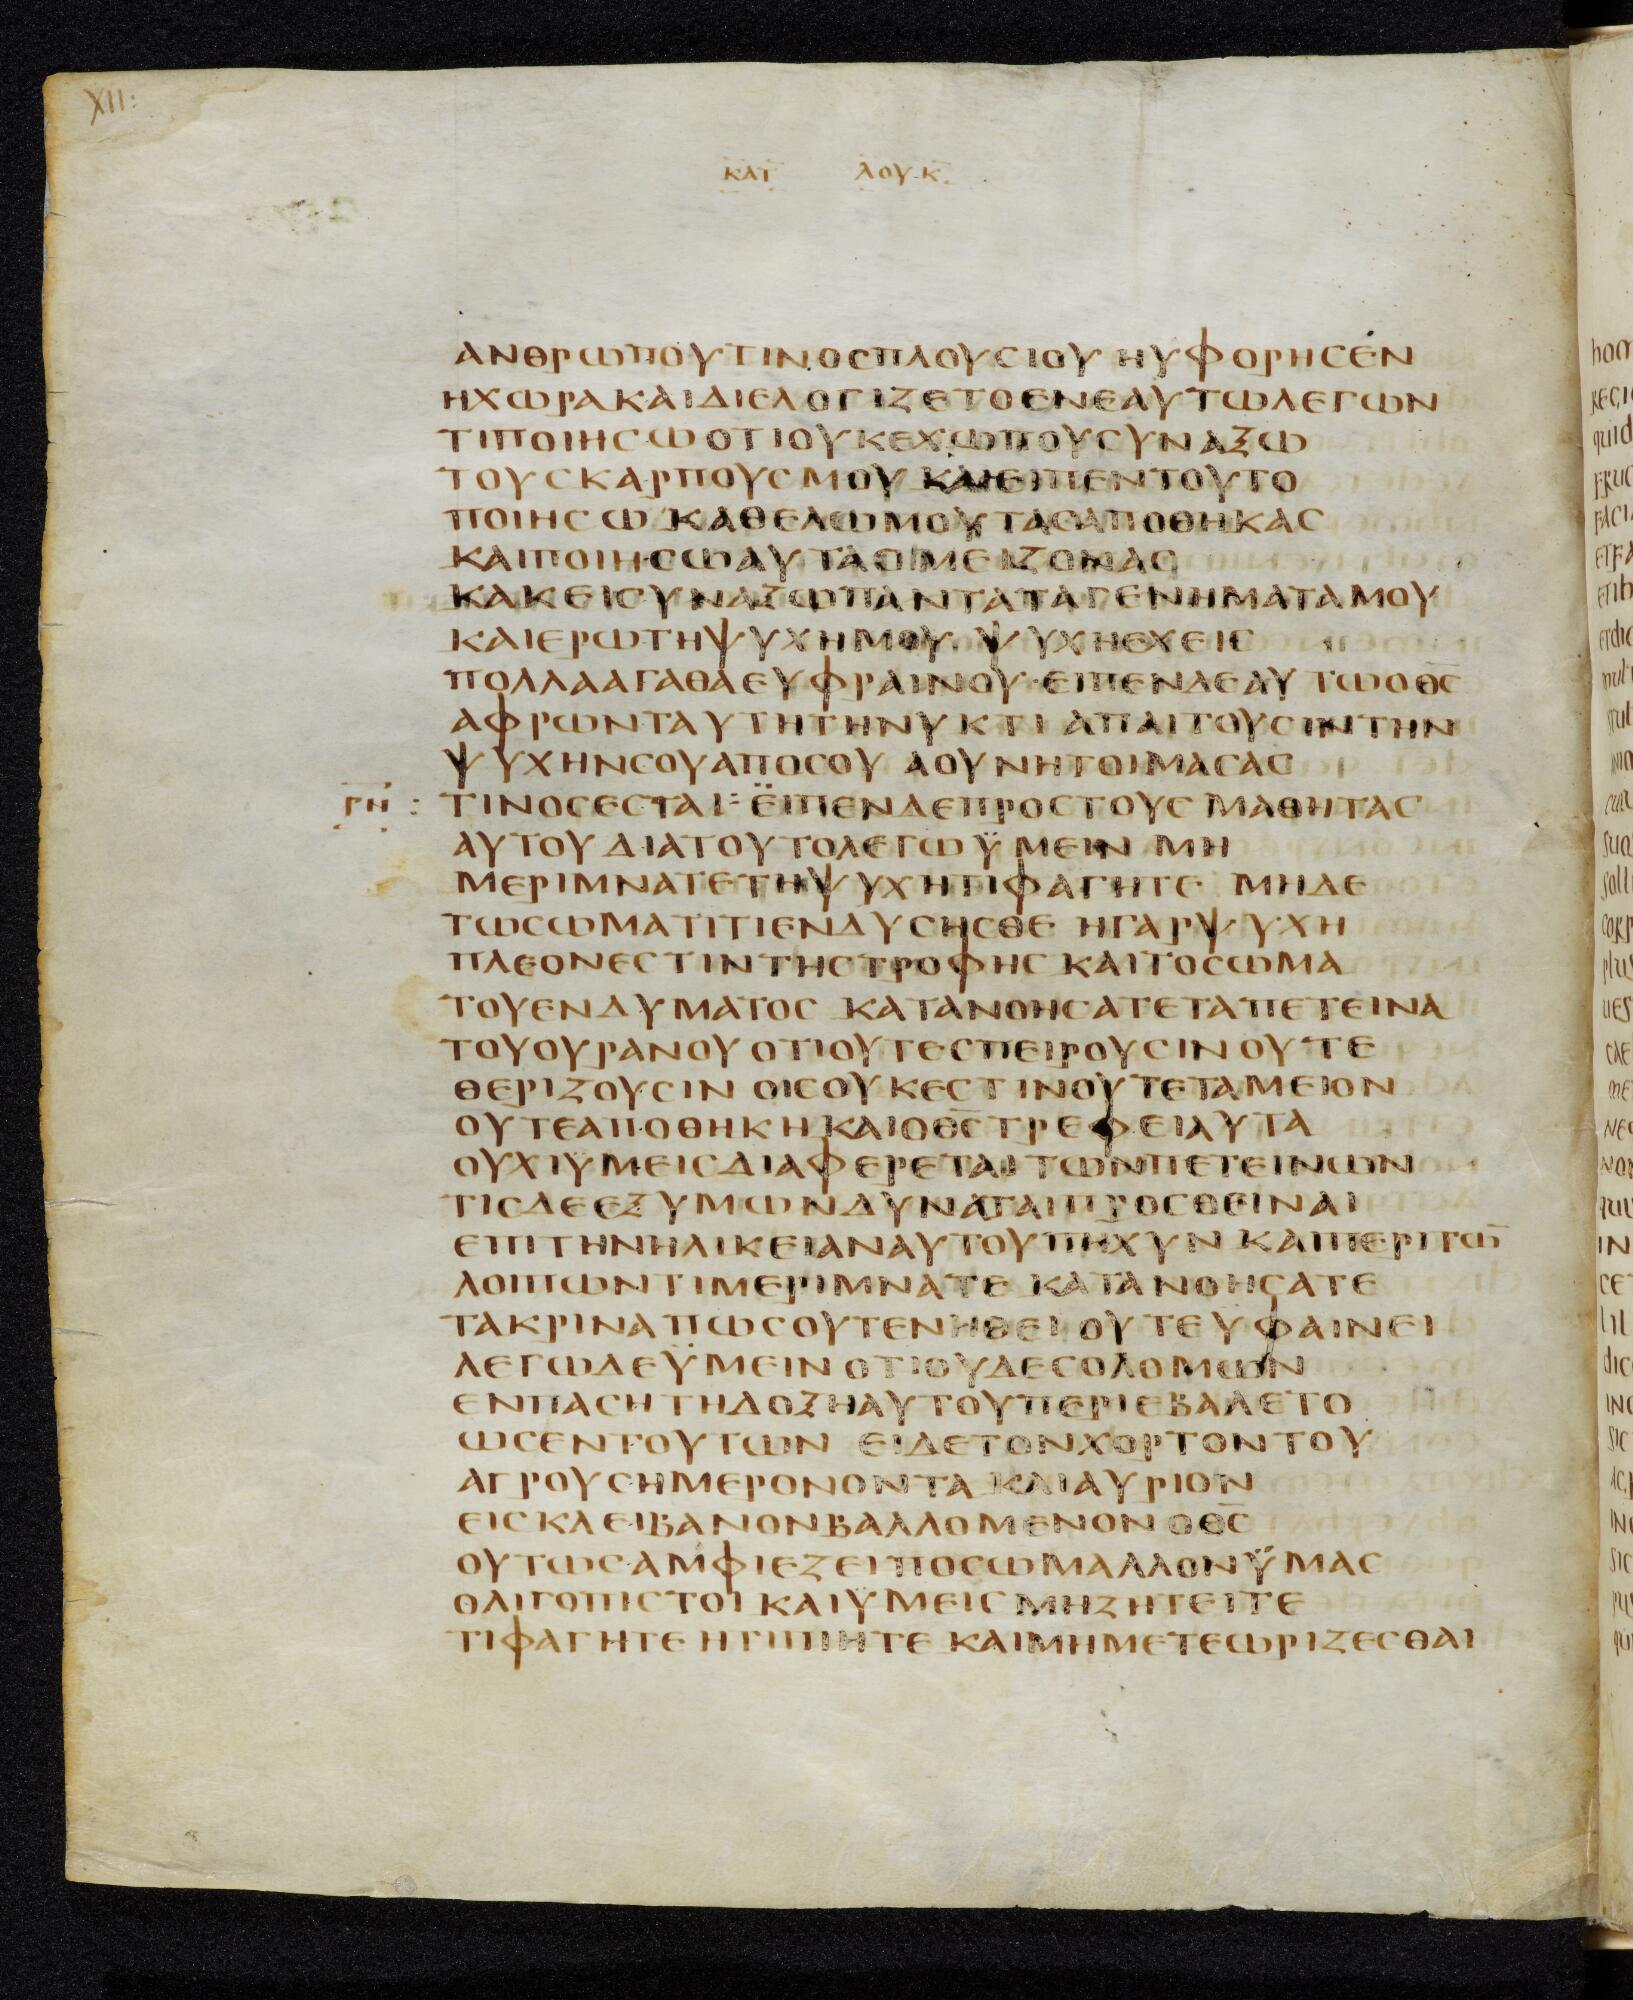 XII:
ΚΑΤ ΛΟΥΚ
ΑΝΘΡΩΠΟΥΤΙΝΟСΠΛΟΥСΙΟΥ ΗΥΦΟΡΗСΕΝ
ΗΧΩΡΑΚΑΙΔΙΕΛΟΓΙΖΕΤΟΕΝΕΑΥΤΩΛΕΓΩΝ
ΤΙΠΟΙΗСΩΟΤΙΟΥΚΕΧΩΠΟΥСΥΝΑΞΩ
ΤΟΥСΚΑΡΠΟΥСΜΟΥ ΚΑΙΕΙΠΕΝΤΟΥΤΟ
ΠΟΙΗСΩ ΚΑΘΕΛΩΜΟΥΤΑСΑΠΟΘΗΚΑС
ΚΑΙΠΟΙΗСΩΑΥΤΑСΜΕΙΖΟΝΑС
ΚΑΚΕΙСΥΝΑΞΩΠΑΝΤΑΤΑΓΕΝΗΜΑΤΑΜΟΥ
ΚΑΙΕΡΩΤΗΨΥΧΗΜΟΥ ΨΥΧΗΕΧΕΙС
ΠΟΛΛΑΑΓΑΘΑΕΥΦΡΑΙΝΟΥ·ΕΙΠΕΝΔΕΑΥΤΩΟΘ̅С̅
ΑΦΡΩΝΤΑΥΤΗΤΗΝΥΚΤΙ ΑΠΑΙΤΟΥСΙΝΤΗΝ
ΨΥΧΗΝСΟΥΑΠΟСΟΥ ΑΟΥΝΗΤΟΙΜΑСΑС
ΓΝ : ΤΙΝΟСΕСΤΑΙ ΕΙΠΕΝΔΕΠΡΟСΤΟΥС ΜΑΘΗΤΑС
ΑΥΤΟΥ ΔΙΑΤΟΥΤΟΛΕΓΩΫΜΕΙΝ ΜΗ
ΜΕΡΙΜΝΑΤΕΤΗΨΥΧΗΤΙΦΑΓΗΤΕ ΜΗΔΕ
ΤΩСΩΜΑΤΙΤΙΕΝΔΥСΗСΘΕ ΗΓΑΡΨΥΧΗ
ΠΛΕΟΝΕСΤΙΝΤΗСΤΡΟΦΗС ΚΑΙΤΟСΩΜΑ
ΤΟΥΕΝΔΥΜΑΤΟС ΚΑΤΑΝΟΗСΑΤΕΤΑΠΕΤΕΙΝΑ
ΤΟΥΟΥΡΑΝΟΥ ΟΤΙΟΥΤΕСΠΕΙΡΟΥСΙΝ ΟΥΤΕ
ΘΕΡΙΖΟΥСΙΝ ΟΙСΟΥΚΕСΤΙΝΟΥΤΕΤΑΜΕΙΟΝ
ΟΥΤΕΑΠΟΘΗΚΗ ΚΑΙΟΘ̅С̅ΤΡΕΦΕΙΑΥΤΑ
ΟΥΧΙΫΜΕΙСΔΙΑΦΕΡΕΤΑΙΤΩΝΠΕΤΕΙΝΩΝ
ΤΙСΔΕΕΞΥΜΩΝΔΥΝΑΤΑΙΠΡΟСΘΕΙΝΑΙ
ΕΠΙΤΗΝΗΛΙΚΕΙΑΝΑΥΤΟΥΠΗΧΥΝ ΚΑΙΠΕΡΙΤΩ̅
ΛΟΙΠΩΝΤΙΜΕΡΙΜΝΑΤΕ ΚΑΤΑΝΟΗСΑΤΕ
ΤΑΚΡΙΝΑΠΩСΟΥΤΕΝΗΘΕΙ ΟΥΤΕΥΦΑΙΝΕΙ
ΛΕΓΩΔΕΫΜΕΙΝ ΟΤΙΟΥΔΕСΟΛΟΜΩΝ
ΕΝΠΑСΗΤΗΔΟΞΗΑΥΤΟΥΠΕΡΙΕΒΑΛΕΤΟ
ΩСΕΝΤΟΥΤΩΝ ΕΙΔΕΤΟΝΧΟΡΤΟΝΤΟΥ
ΑΓΡΟΥСΗΜΕΡΟΝΟΝΤΑ ΚΑΙΑΥΡΙΟΝ
ΕΙСΚΛΕΙΒΑΝΟΝΒΑΛΛΟΜΕΝΟΝ ΟΘ̅С̅
ΟΥΤΩСΑΜΦΙΕΖΕΙΠΟСΩΜΑΛΛΟΝΫΜΑС
ΟΛΙΓΟΠΙСΤΟΙ ΚΑΙΫΜΕΙС ΜΗΖΗΤΕΙΤΕ
ΤΙΦΑΓΗΤΕ ΗΤΙΠΙΗΤΕ ΚΑΙΜΗΜΕΤΕΩΡΙΖΕСΘΑΙ